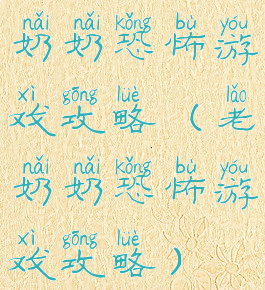 nǎi nǎi kǒng bù yóu
奶奶恐怖游
xì gōng lüè lǎo
戏攻略（老
nǎi nǎi kǒng bù yóu
奶奶恐怖游
xì gōng lüè
戏攻略）